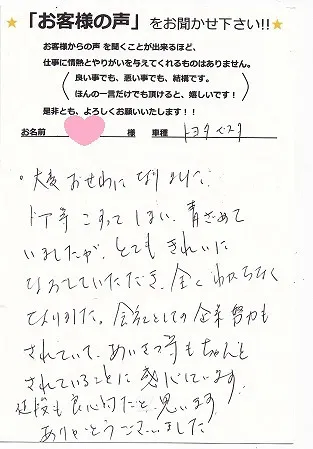 ★「お客様の声」をお聞かせ下さい!!★
お客様からの声 を聞くことが出来るほど、
仕事に情熱とやりがいを与えてくれるものはありません。
良い事でも、悪い事でも、結構です。
ほんの一言だけでも頂けると、嬉しいです！
是非とも、よろしくお願いいたします！！
お名前 様 車種 トヨタ ベスタ
・大変おせわになりました。
ドア等こすってしまい、青ざめて
いましたが、とてもきれいに
なおしていただき、全くわからなく
なりました。会社としての企業努力も
されていて、あいさつ等もちゃんと
されていることに感心しています。
値段も良心的だと思います
ありがとうございました